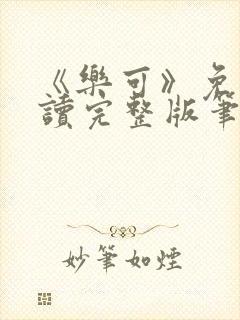 《樂可》免
讀完整版筆
妙筆如煙